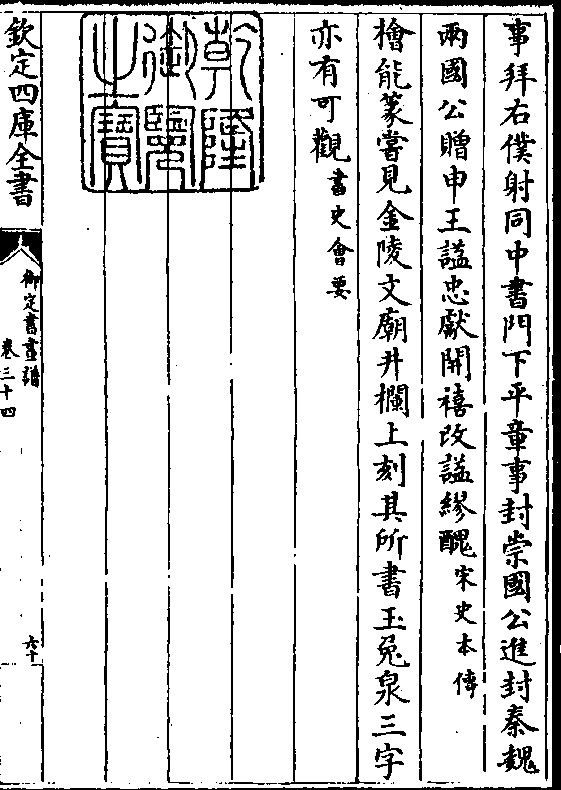 事拜右僕射同中書門下平章事封崇國公進封秦魏
兩國公贈申王謚忠獻開禧改謚繆醜宋史本傳
檜能篆嘗見金陵文廟井欄上刻其所書玉兔泉三字
亦有可觀書史會要
乾隆御覽之寶
欽定四庫全書
御定書畫譜
卷三十四
六十